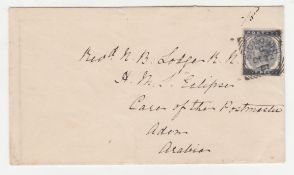 Revd N. B. Lodge R. N
H. M. S. Eclipse
Care of the Postmaster
Aden
Arabia